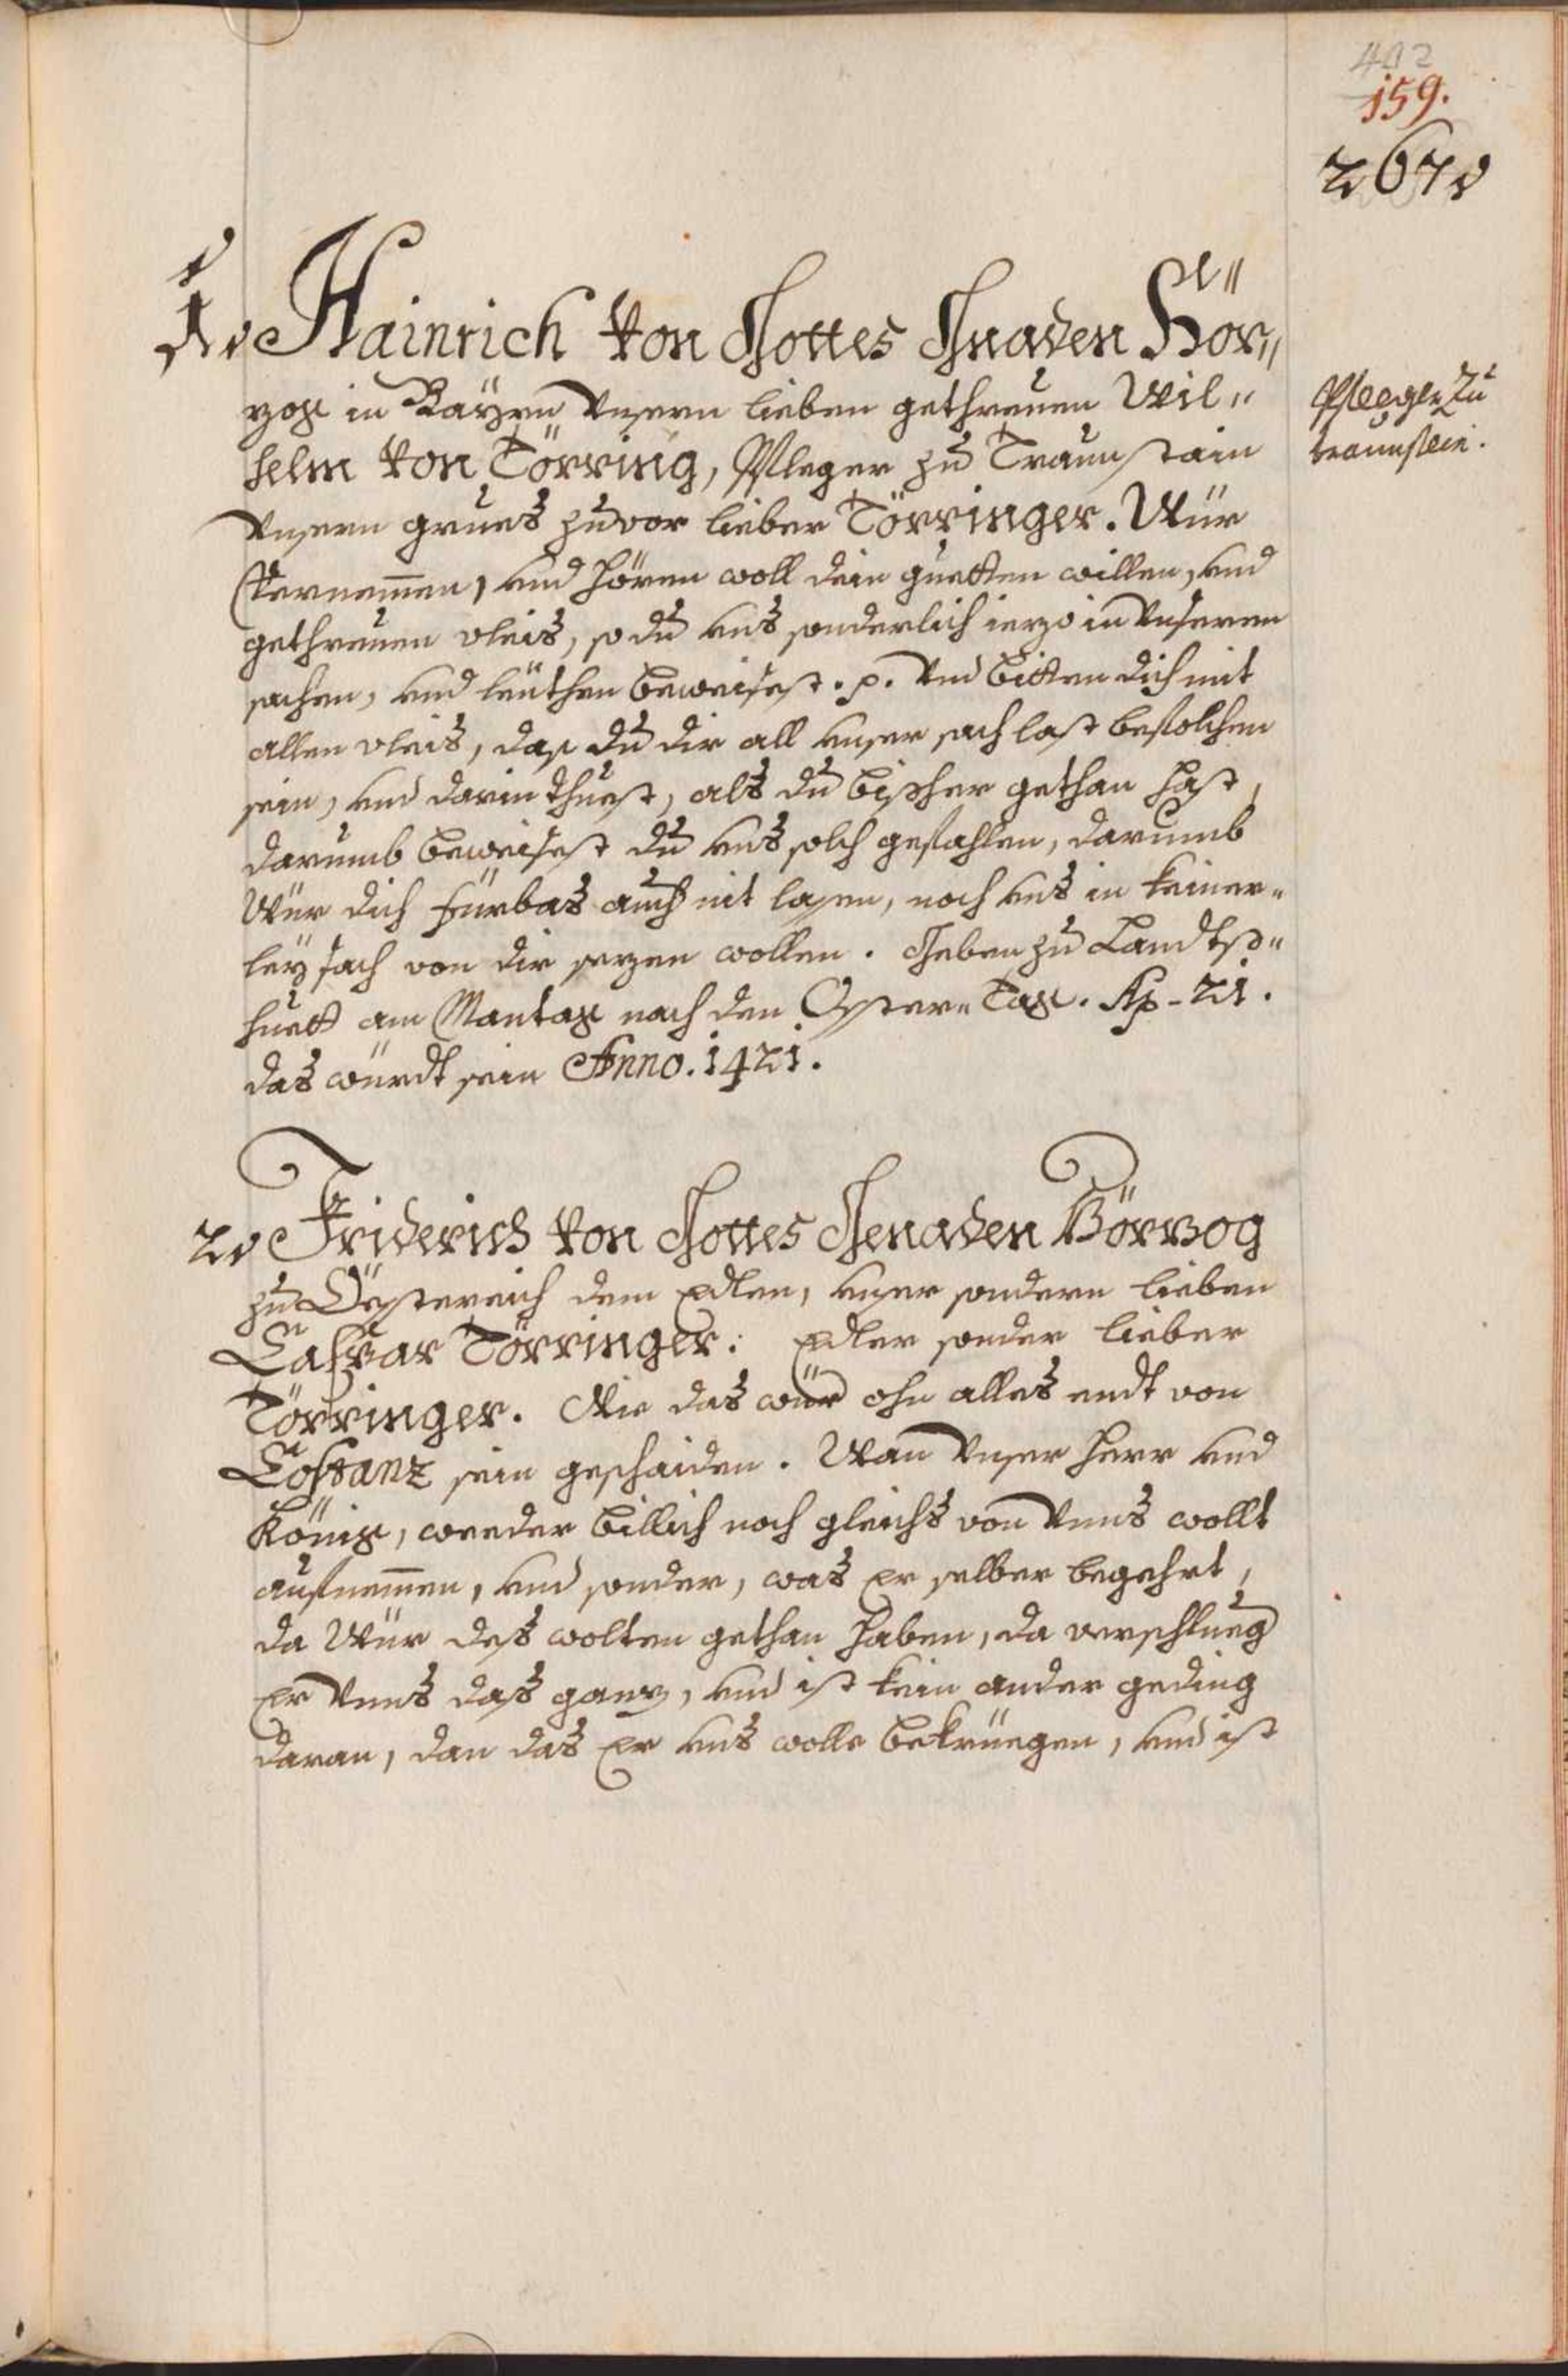 402
159.
267.
1. Hainrich von Gottes Gnaden Hör„
zog in Bayrn Unsern lieben gethreuen Wil„
helm von Törring, Pfleger zu Traunstain
Pfleeger Zu
traunstein.
Unsern grues zuvor lieber Törringer. Wür
Vernemmen, und hören woll dein guetten willen, und
gethreuen vleis, so du uns sonderlich iezo in Unseren
sachen, und leuthen beweisest. p. Und bitten dich mit
allen vleis, das du dir all unser sach last befolchen
sein, und darin thuest, als du bishher gethan hast,
darumb beweisest du uns solch gefahlen, darumb
Wür dich fürbas auch nit lassen, noch uns in keiner„
ley sach von dir sezen wollen. Geben zu Landtß„
huett am Mantag nach den Oster„ Tag. Ap. 21.
das würdt sein Anno. 1421.
2. Friderich von Gottes Genaden Hörzog
zu Össtereich dem Edlen, unser sondern lieben
Caspar Törringer: Edler sonder lieber
Törringer. Wie das wür ohn alles endt von
Costanz sein geschaiden. Wan Unser Herr und
König, weeder billich noch gleichs von Unns wollt
aufnemmen, und sonder, was Er selber begehrt,
da Wür des wolten gethan haben, da verschlueg
Er Unns das ganz, und ist kein ander geding
daran, dan das Er uns wolle bekruegen, und ist